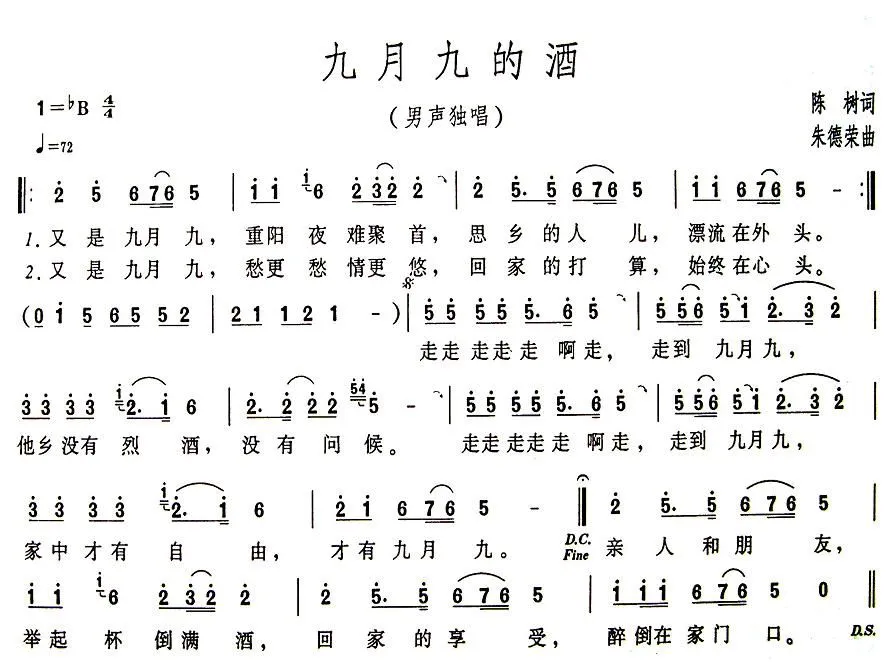 九月九的酒
(男声独唱)
1=♭B 4/4
♩=72
陈 树词
朱德荣曲
‖: 2̇ 5̇ 6765 | 1̇ 1̇ 1̇6 2̇ 3̇2̇ 2̇ | 2̇ 5̇. 5̇ 6765 | 1̇ 1̇ 676 5 - :‖
1.又是九月九，重阳夜难聚首，思乡的人儿，漂流在外头。
2.又是九月九，愁更愁情更悠，回家的打算，始终在心头。
(0 1̇ 5 65 52 | 21 121 -) | 5̇5̇ 5̇5̇ 5̇. 6̇ 5̇ | 5̇5̇6̇ 5̇1̇ 2̇. 3̇ 2̇ |
走走走走走啊走，走到九月九，
3̇3̇ 3̇3̇ 1̇2̇. 1̇ 6 | 2̇. 2̇ 2̇2̇ 5̇4̇5̇ - | 5̇5̇ 5̇5̇ 5̇. 6̇ 5̇ | 5̇5̇6̇ 5̇1̇ 2̇. 3̇ 2̇ |
他乡没有烈酒，没有问候。走走走走走啊走，走到九月九，
3̇3̇ 3̇3̇ 1̇2̇. 1̇ 6 | 2̇1̇ 676 5 - ‖ 2̇ 5̇. 5̇ 676 5
家中才有自由，才有九月九。D.C. Fine 亲人和朋友，
1̇ 1̇ 1̇6 2̇ 3̇2̇ 2̇ | 2̇ 5̇. 5̇ 676 5 | 1̇1̇1̇ 676 5 0 ‖
举起杯倒满酒，回家的享受，醉倒在家门口。D.S.